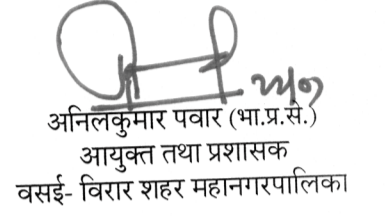 अनिलकुमार पवार (भा.प्र.से.)
आयुक्त तथा प्रशासक
वसई- विरार शहर महानगरपालिका